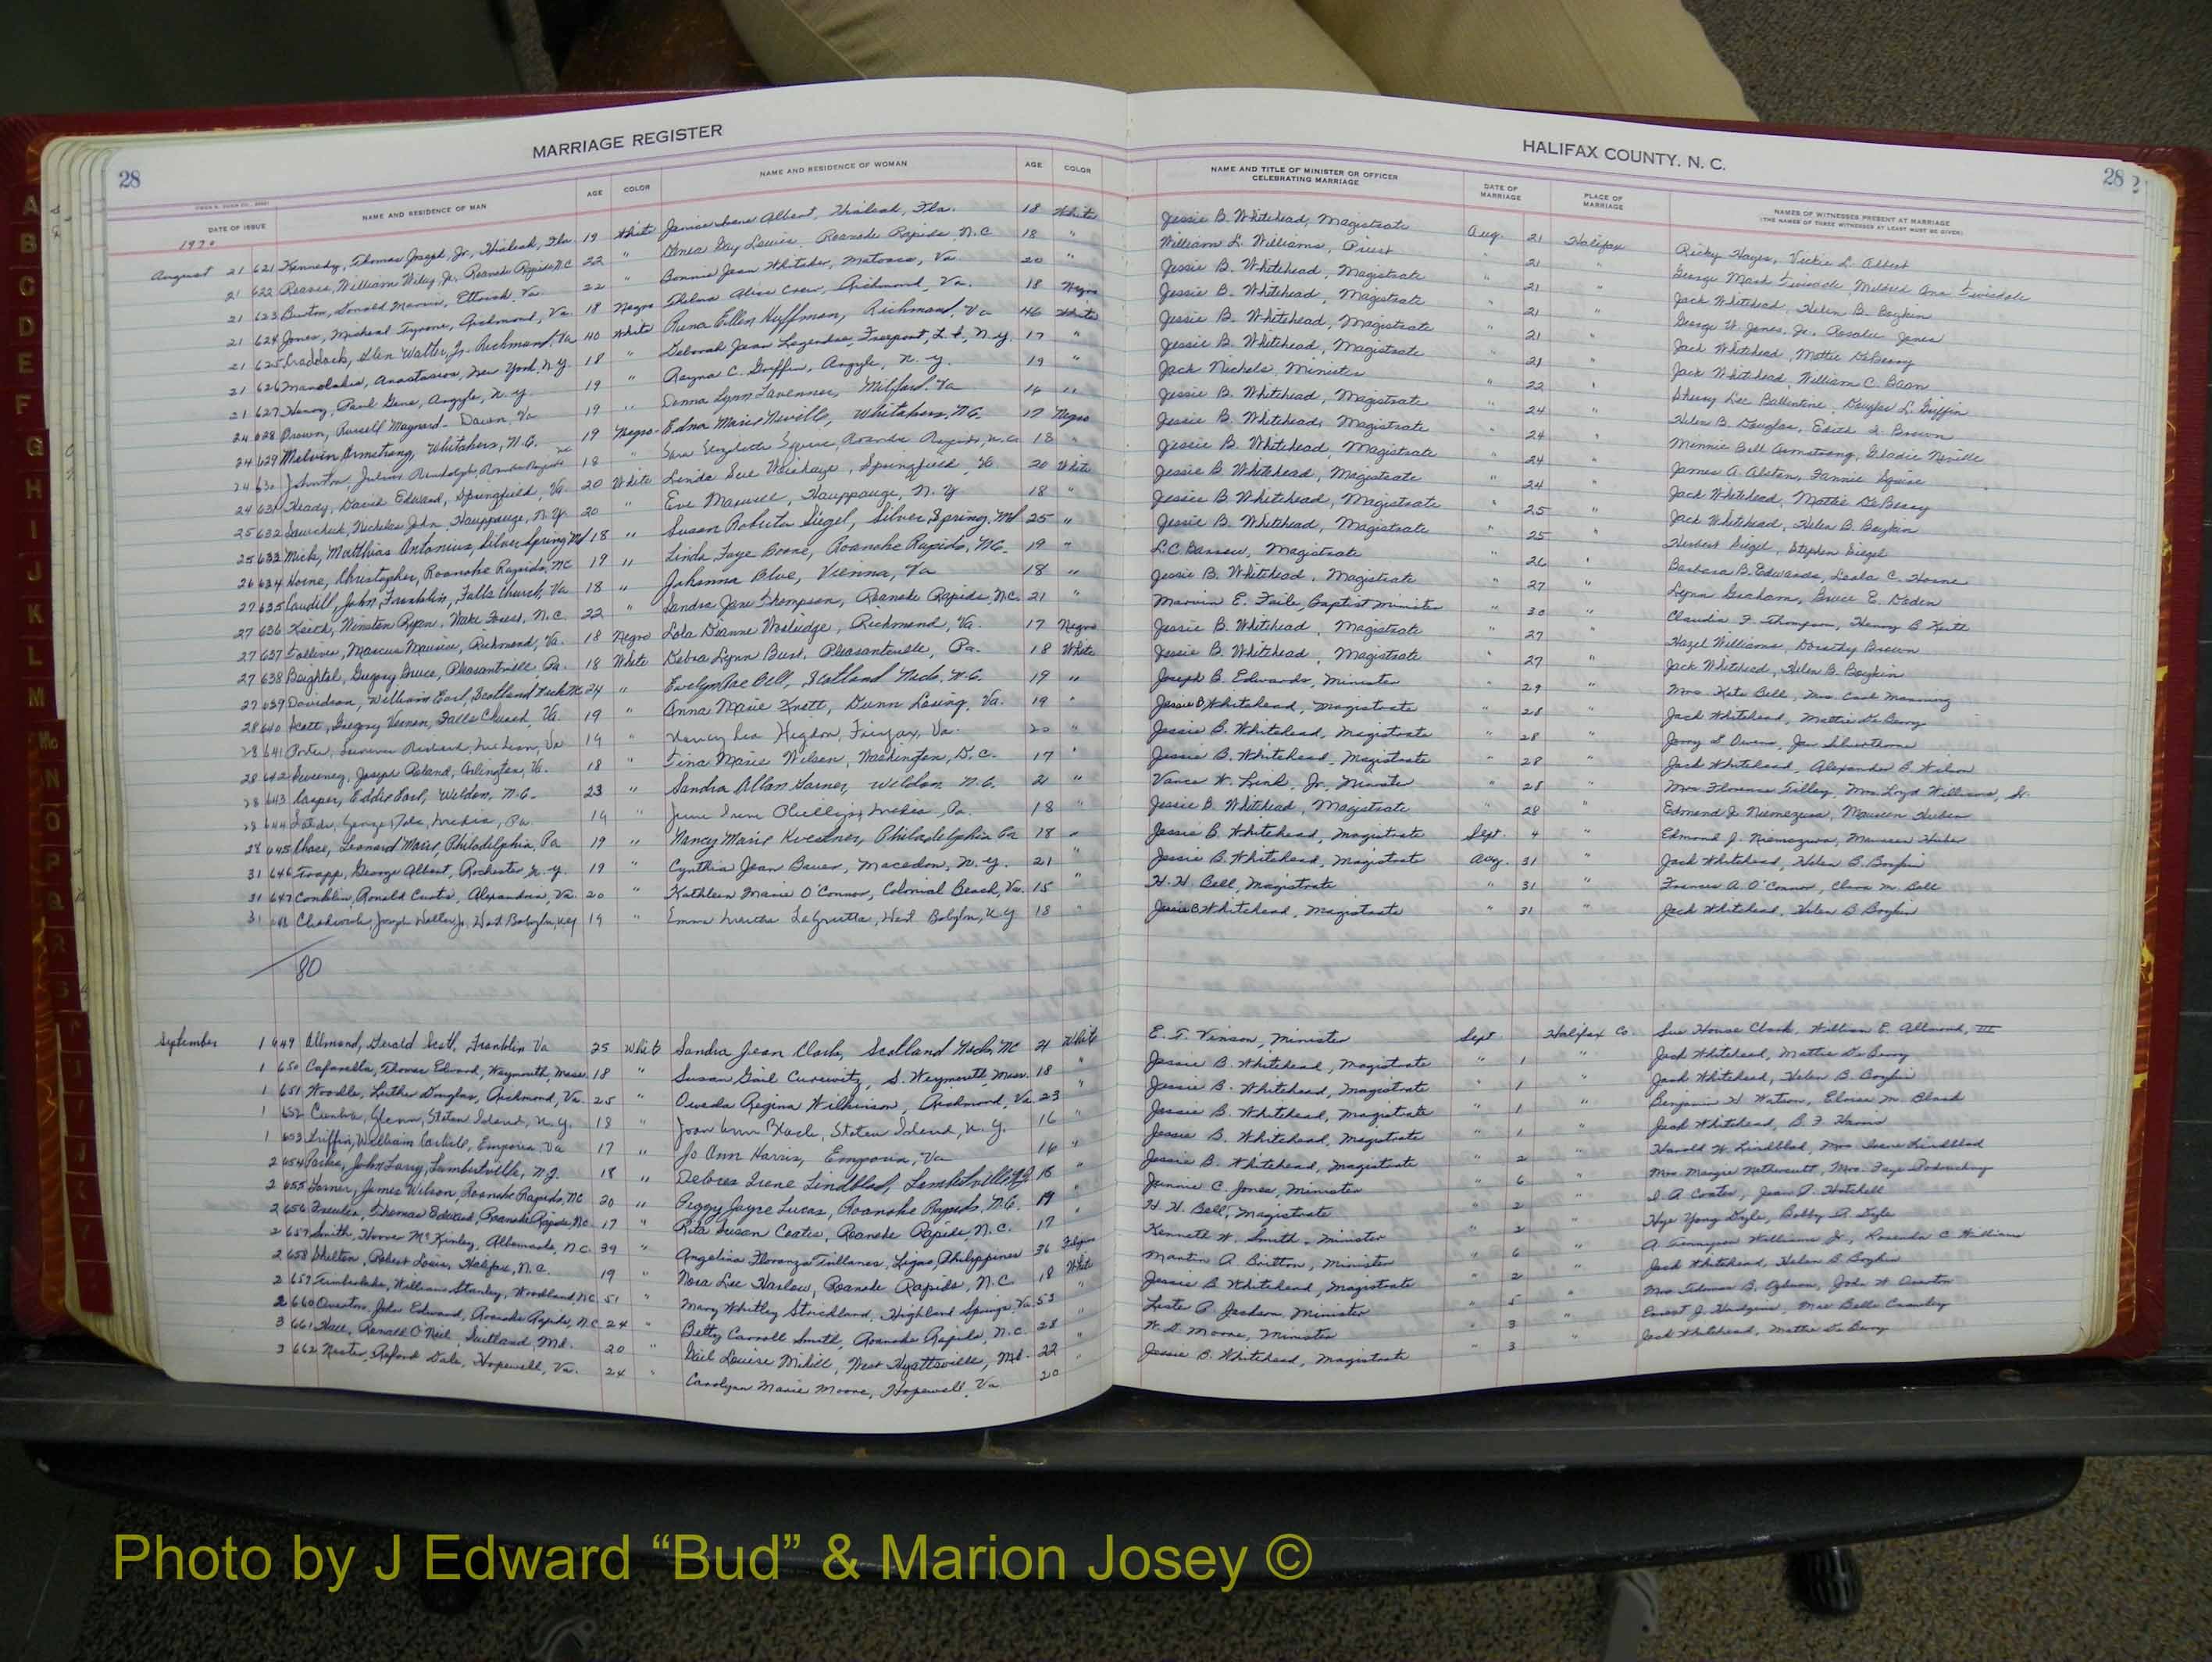 MARRIAGE REGISTER
HALIFAX COUNTY, N. C.
28
28
DATE OF ISSUE NAME AND RESIDENCE OF MAN AGE COLOR NAME AND RESIDENCE OF WOMAN AGE COLOR NAME AND TITLE OF MINISTER OR OFFICER CELEBRATING MARRIAGE DATE OF MARRIAGE PLACE OF MARRIAGE NAMES OF WITNESSES PRESENT AT MARRIAGE
(THE NAMES OF THREE WITNESSES AT LEAST MUST BE GIVEN)
1970
August 21 621 Kennedy, Thomas Joseph, Jr., Hialeah, Fla. 19 White Albert, Hialeah, Fla. 18 White Jessie B. Whitehead, Magistrate Aug. 21 Halifax Ricky Hayes, Vickie L. Albert
21 622 Reaves, William Wiley, Jr., Roanoke Rapids N.C 22 " Gay Lewis, Roanoke Rapids, N.C 18 " William L. Williams, Priest " 21 " George Mack
21 623 Donald Marvin, Ettrick, Va. 22 " Bonnie Jean Matoaca, Va 20 " Jessie B. Whitehead, Magistrate " 21 " Jack Whitehead, Helen B. Boykin
21 624 Jones, Micheal Tyrone, Richmond, Va. 18 Negro Thelma Alice Richmond, Va. 18 Negro Jessie B. Whitehead, Magistrate " 21 " George W. Jones, Jr. Rosalie Jones
21 625 Craddock, Walter, Jr. Richmond, Va 40 White Ellen Huffman, Richmond, Va 46 White Jessie B. Whitehead, Magistrate " 21 " Jack Whitehead, Mattie DeBerry
21 626 Manolakis, New York, N.Y. 18 " Deborah Jean Freeport, L.I., N.Y. 17 " Jessie B. Whitehead, Magistrate " 21 " Jack Whitehead, William C.
21 627 Henry, Paul Gene, Argyle, N.Y. 19 " C. Griffin, Argyle, N.Y. 19 " Jack Nichols, Minister " 22 " Sherry Lee Ballentine, Douglas L. Griffin
24 628 Brown, Russell Maynard Va. 19 " Donna Lynn Milford, Va 16 " Jessie B. Whitehead, Magistrate " 24 " Helen B. Douglas, Edith Brown
24 629 Melvin Armstrong, Whitakers, N.C. 19 Negro Edna Marie Neville, Whitakers, N.C. 17 Negro Jessie B. Whitehead, Magistrate " 24 " Minnie Bell Armstrong, Neville
24 630 Johnston, Julius Randolph, Roanoke Rapids NC 18 " Elizabeth Squire, Roanoke Rapids, N.C. 18 " Jessie B. Whitehead, Magistrate " 24 " James A. Alston, Fannie Squire
24 631 David Edward, Springfield, Va. 20 White Linda Sue Springfield, Va 20 White Jessie B. Whitehead, Magistrate " 24 " Jack Whitehead, Mattie DeBerry
25 632 Nicholas John, Hauppauge, N.Y. 20 " Eve Maxwell, Hauppauge, N.Y 18 " Jessie B. Whitehead, Magistrate " 25 " Jack Whitehead, Helen B. Boykin
25 633 Mick, Matthias Antonius, Silver Spring Md 18 " Susan Roberta Siegel, Silver Spring, Md 25 " Jessie B. Whitehead, Magistrate " 25 " Herbert Siegel, Stephen Siegel
26 634 Horne, Christopher, Roanoke Rapids, NC 19 " Linda Faye Boone, Roanoke Rapids, N.C. 19 " L.C. Magistrate " 26 " Barbara B. Edwards, C. Horne
27 635 Caudill, John Franklin, Falls Church, Va 18 " Johanna Blue, Vienna, Va 18 " Jessie B. Whitehead, Magistrate " 27 " Lynn Graham, Bruce E.
27 636 Keith, Winston Ryan, Wake Forest, N.C. 22 " Sandra Jane Thompson, Roanoke Rapids, N.C. 21 " Marvin E. Faile, Baptist Minister " 30 " Claudia F. Thompson, Henry B Keith
27 637 Marcus Maurice, Richmond, Va. 18 Negro Lola Dianne Richmond, Va. 17 Negro Jessie B. Whitehead, Magistrate " 27 " Hazel Williams, Dorothy Brown
27 638 Beightel, Gregory Bruce, Pleasantville, Pa. 18 White Debra Lynn Pleasantville, Pa. 18 White Jessie B. Whitehead, Magistrate " 27 " Jack Whitehead, Helen B. Boykin
27 639 Davidson, William Earl, Scotland Neck NC 24 " Evelyn Rae Bell, Scotland Neck, N.C. 19 " Joseph B. Edwards, Minister " 29 " Mrs. Kate Bell, Mrs. Carl Manning
28 640 Scott, Gregory Vernon, Falls Church, Va. 19 " Anna Marie Knott, Dunn Loring, Va. 19 " Jessie B Whitehead, Magistrate " 28 " Jack Whitehead, Mattie DeBerry
28 641 Porter, Va 19 " Nancy Higdon, Fairfax, Va. 20 " Jessie B. Whitehead, Magistrate " 28 " Jerry S. Owens, Jan
28 642 Sweeney, Joseph Roland, Arlington, Va. 18 " Tina Marie Wilson, Washington, D.C. 17 " Jessie B. Whitehead, Magistrate " 28 " Jack Whitehead, Alexander B. Wilson
28 643 Casper, Eddie Earl, Weldon, N.C. 23 " Sandra Allan Garner, Weldon, N.C. 21 " Vance W. Link, Jr., Minister " 28 " Mrs Florence Tilley, Mrs. Loyd Williams, Sr.
28 644 Media, Pa. 19 " June Irene Media, Pa. 18 " Jessie B. Whitehead, Magistrate " 28
28 645 Chase, Leonard Marc, Philadelphia, Pa 19 " Nancy Marie Philadelphia Pa 18 " Jessie B. Whitehead, Magistrate Sept. 4 " Edmond J.
31 646 Trapp, George Albert, Rochester N.Y. 19 " Cynthia Jean Bauer, Macedon, N.Y. 21 " Jessie B. Whitehead, Magistrate Aug. 31 " Jack Whitehead, Helen B. Boykin
31 647 Conklin, Ronald Curtis, Alexandria, Va. 20 " Kathleen Marie O'Connor, Colonial Beach, Va. 15 " H.H. Bell, Magistrate " 31 " Frances A. O'Connor, Clara M. Bell
31 48 Chadwick, Joseph Walter, Jr., West Babylon, N.Y 19 " Emma West Babylon, N.Y 18 " Jessie B Whitehead, Magistrate " 31 " Jack Whitehead, Helen B Boykin
80
September 1 649 Allmond, Gerald Scott, Franklin Va 25 White Sandra Jean Clark, Scotland Neck, NC 21 White E. T. Vinson, Minister Sept Halifax Co. Sue House Clark, William E. Allmond, III
1 650 Cafarella, Thomas Edward, Weymouth, Mass. 18 " Susan Gail S. Weymouth, Mass. 18 " Jessie B. Whitehead, Magistrate " 1 " Jack Whitehead, Mattie DeBerry
1 651 Woodle, Luther Douglas, Richmond, Va. 25 " Regina Wilkinson, Richmond, Va. 23 " Jessie B. Whitehead, Magistrate " 1 " Jack Whitehead, Helen B. Boykin
1 652 Glenn, Staten Island, N.Y. 18 " Joan Ann Staten Island, N.Y. 16 " Jessie B. Whitehead, Magistrate " 1 " Benjamin H. Watson, Eloise M. Black
1 653 Griffin, William Carlisle, Emporia, Va 17 " Jo Ann Harris, Emporia, Va 16 " Jessie B. Whitehead, Magistrate " 1 " Jack Whitehead, B.F. Harris
2 654 John Larry, Lambertville, N.J. 18 " Delores Irene Lindblad, Lambertville NJ 18 " Jessie B. Whitehead, Magistrate " 2 " Harold W. Lindblad, Mrs. Irene Lindblad
2 655 Garner, James Wilson, Roanoke Rapids, NC 20 " Peggy Jayne Lucas, Roanoke Rapids, N.C. 19 " Jimmie C. Jones, Minister " 6 " Mrs. Margie Nethercutt, Mrs. Faye
2 656 Thomas Edward, Roanoke Rapids, NC. 17 " Rita Susan Coates, Roanoke Rapids, N.C. 17 " H.H. Bell, Magistrate " 2 " Coates, Jean P.
2 657 Smith, McKinley, Albemarle, N.C. 39 " Angelina Philippines 36 Kenneth W. Smith, Minister " 2 " Hye Yong Bobby
2 658 Shelton, Robert Louis, Halifax, N.C. 19 " Nora Lee Harlow, Roanoke Rapids, N.C. 18 White Martin A Britton, Minister " 6 " A. Tennyson Williams Jr., C Williams
2 659 Timberlake, William Stanley, Woodland, NC 51 " Mary Whitley Strickland, Highland Springs, Va. 53 " Jessie B Whitehead, Magistrate " 2 " Jack Whitehead, Helen B Boykin
2 660 Overton, John Edward, Roanoke Rapids, N.C 24 " Betty Carroll Smith, Roanoke Rapids, N.C. 28 " Jackson, Minister " 5 " Mrs John W Overton
3 661 Ronald O'Neil Suitland, Md. 20 " Gail Louise West Hyattsville, Md. 22 " W. D. Moore, Minister " 3 " Ernest J. Hudgins, Mae Belle Crawley
3 662 Nester, Raford Dale, Hopewell, Va. 24 " Carolynn Marie Moore, Hopewell, Va 20 Jessie B. Whitehead, Magistrate " 3 Jack Whitehead, Mattie DeBerry
A
B
C
D
E
F
G
H
I
J
K
L
M
Mc
N
O
P
Q
R
S
Photo by J Edward “Bud” & Marion Josey ©